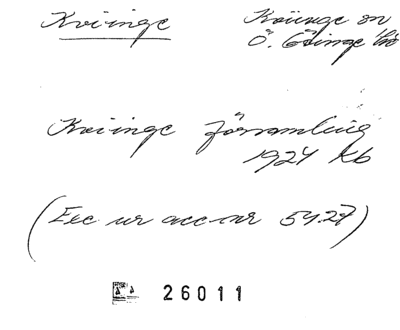 Kviinge
Kviinge sn
Ö. Göinge hd
Kviinge församling
1927 Kb
(Exc ur acc-nr 54.27)
26011